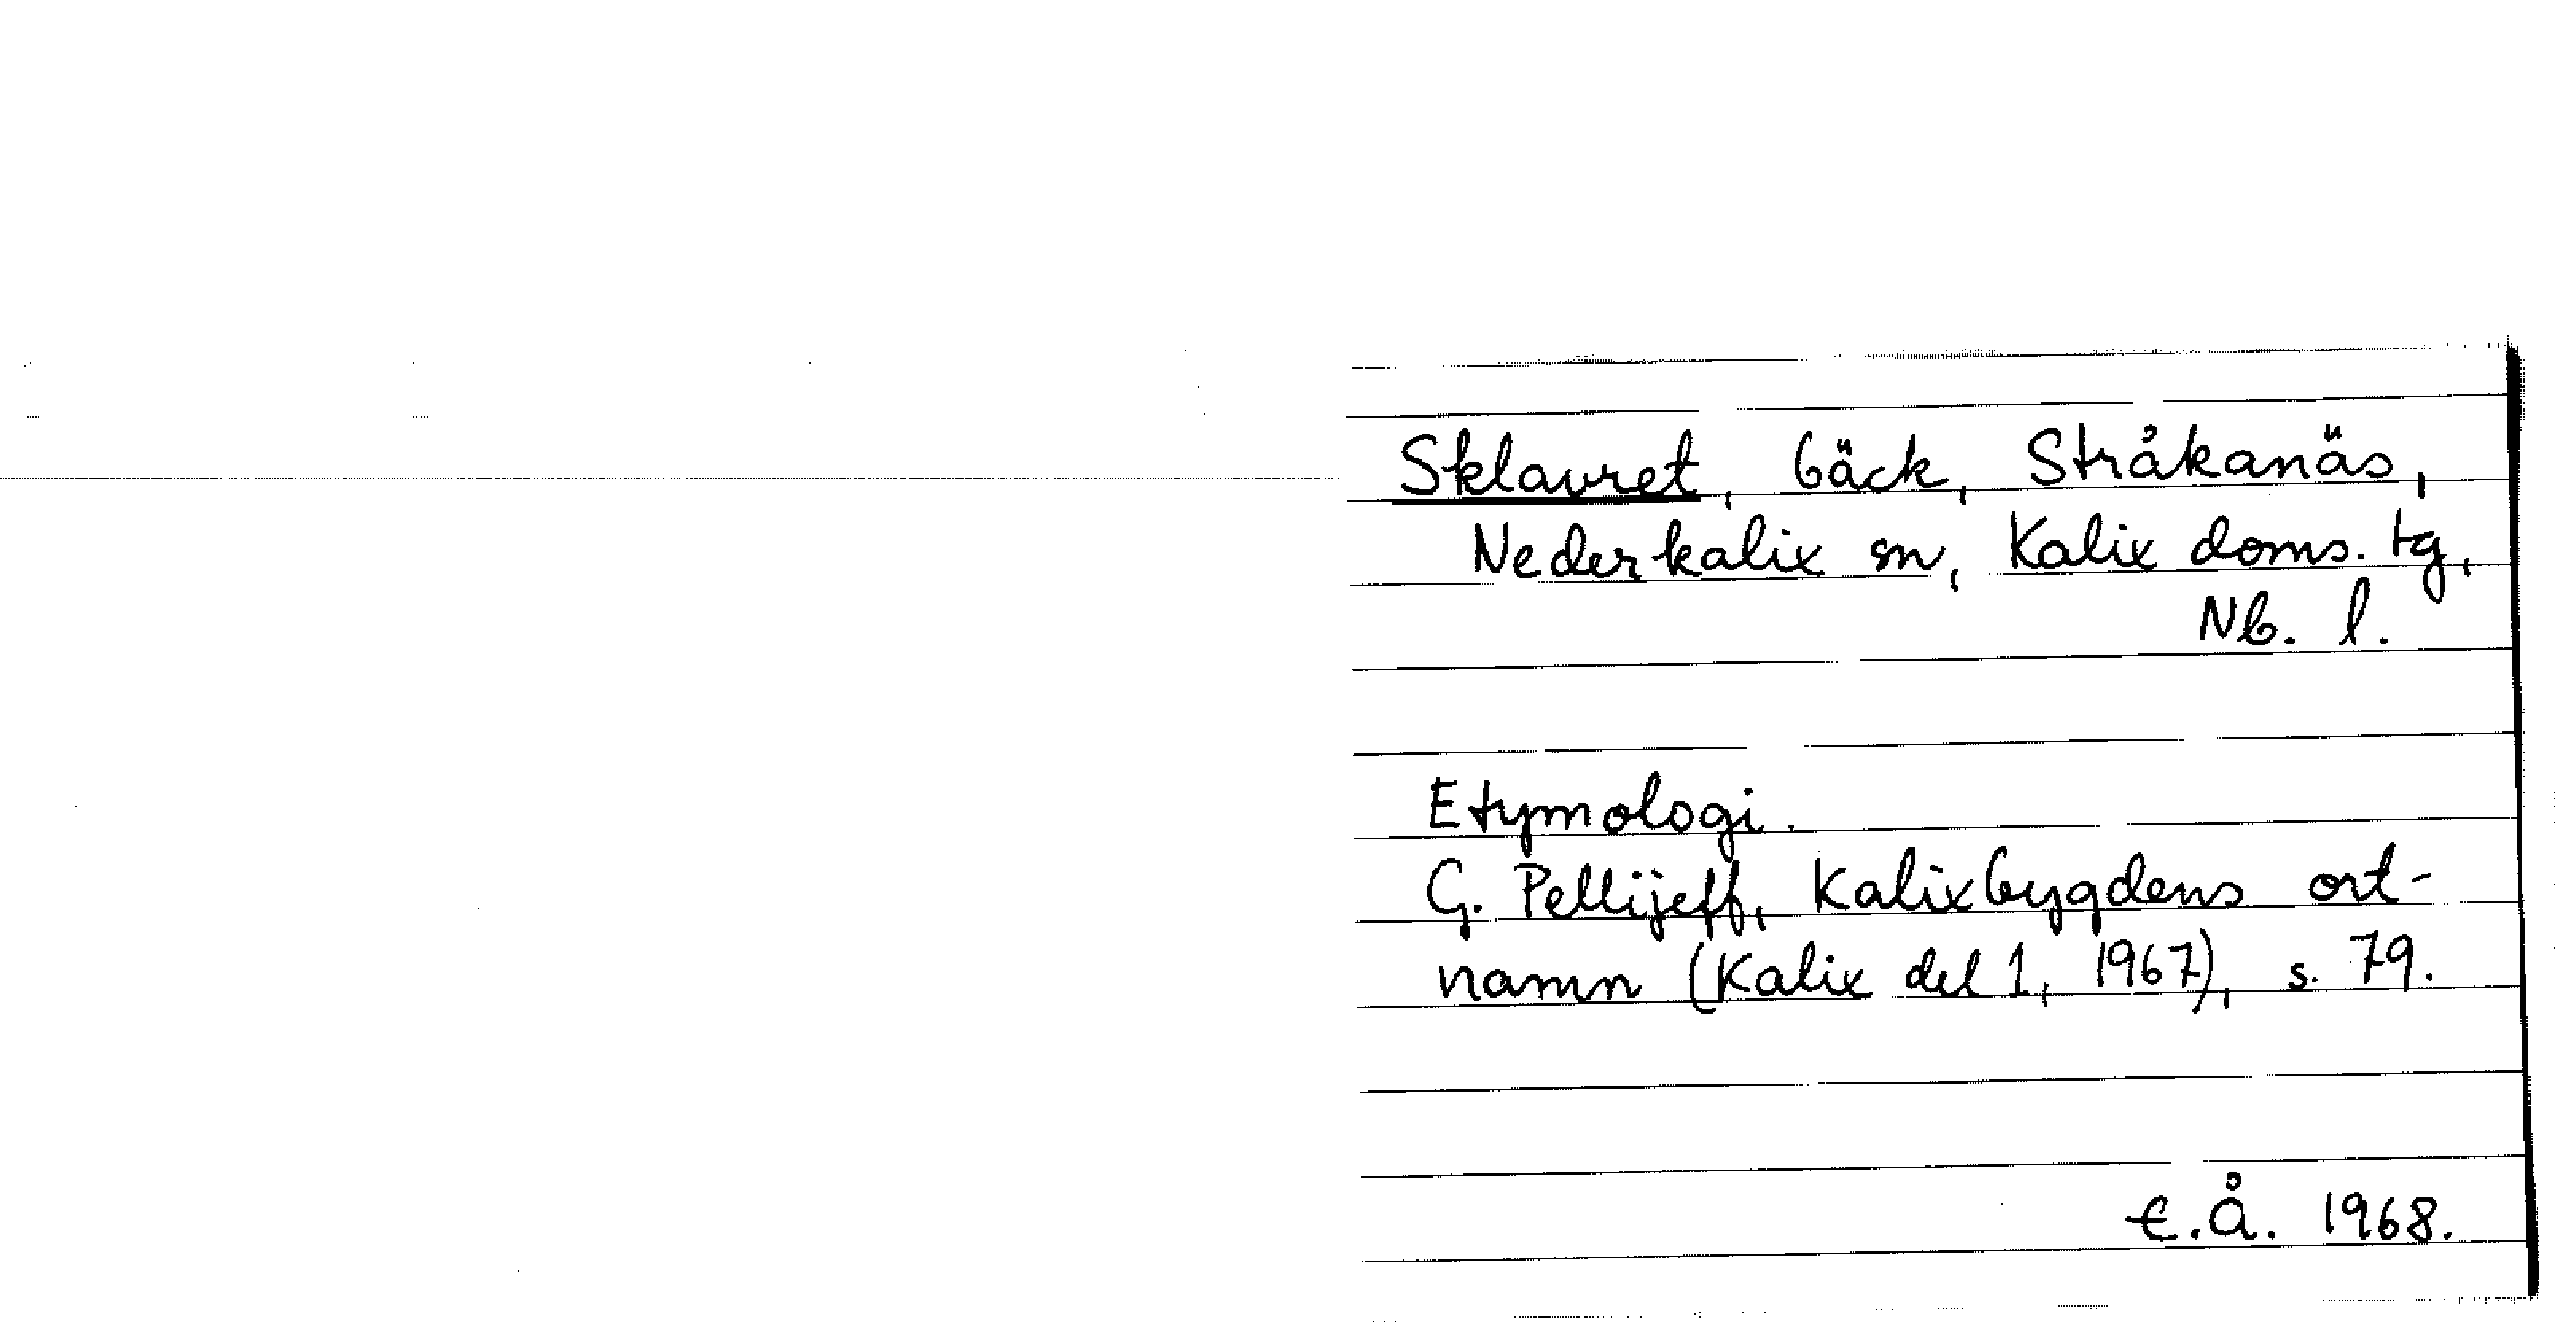 Sklavret, bäck, Stråkanäs,
Nederkalix sn, Kalix doms. tg,
Nb. l.
Etymologi.
G. Pellijeff, Kalixbygdens ort-
namn (Kalix del 1, 1967), s. 79.
E.Å. 1968.